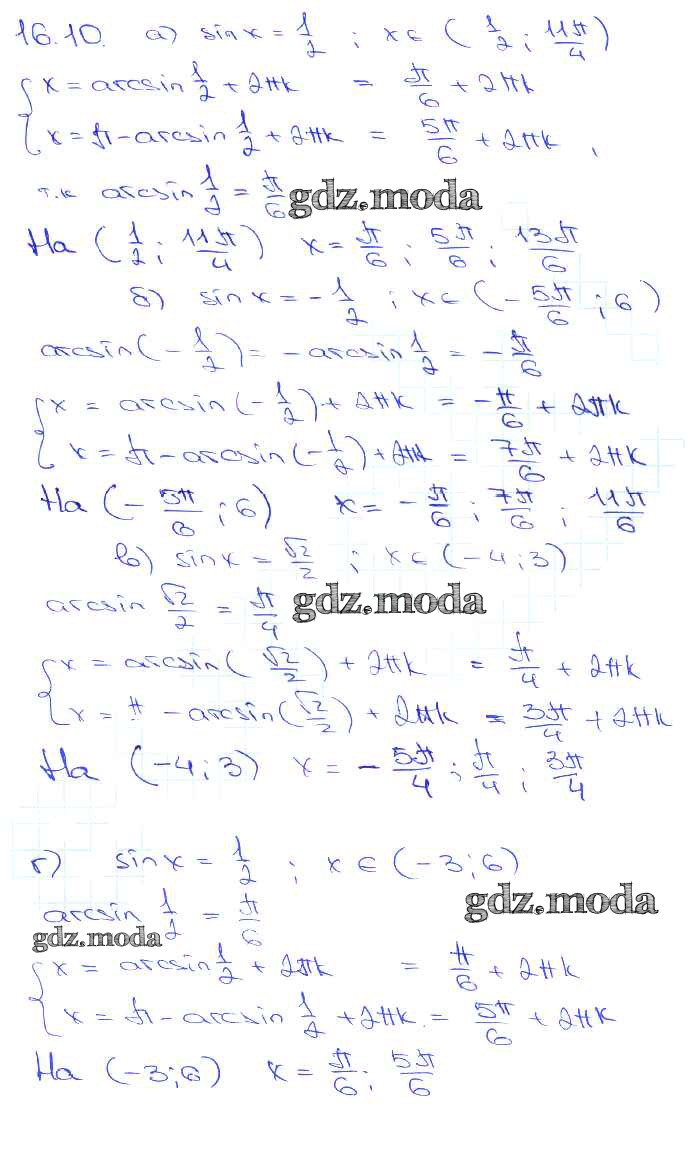 16.10. а) sin x = 1/2 ; x ∈ (1/2; 11π/4)
{ x = arcsin 1/2 + 2πk = π/6 + 2πk
{ x = π - arcsin 1/2 + 2πk = 5π/6 + 2πk ,
т.к arcsin 1/2 = π/6 gdz.moda
На (1/2; 11π/4) x = π/6 ; 5π/6 ; 13π/6
б) sin x = -1/2 ; x ∈ (-5π/6 ; 6)
arcsin(-1/2) = -arcsin 1/2 = -π/6
{ x = arcsin(-1/2) + 2πk = -π/6 + 2πk
{ x = π - arcsin(-1/2) + 2πk = 7π/6 + 2πk
На (-5π/6 ; 6) x = -π/6 ; 7π/6 ; 11π/6
в) sin x = √2/2 ; x ∈ (-4 ; 3)
arcsin √2/2 = π/4 gdz.moda
{ x = arcsin(√2/2) + 2πk = π/4 + 2πk
{ x = π - arcsin(√2/2) + 2πk = 3π/4 + 2πk
На (-4 ; 3) x = -5π/4 ; π/4 ; 3π/4
г) sin x = 1/2 ; x ∈ (-3 ; 6)
arcsin 1/2 = π/6 gdz.moda
gdz.moda
{ x = arcsin 1/2 + 2πk = π/6 + 2πk
{ x = π - arcsin 1/2 + 2πk = 5π/6 + 2πk
На (-3; 6) x = π/6 ; 5π/6